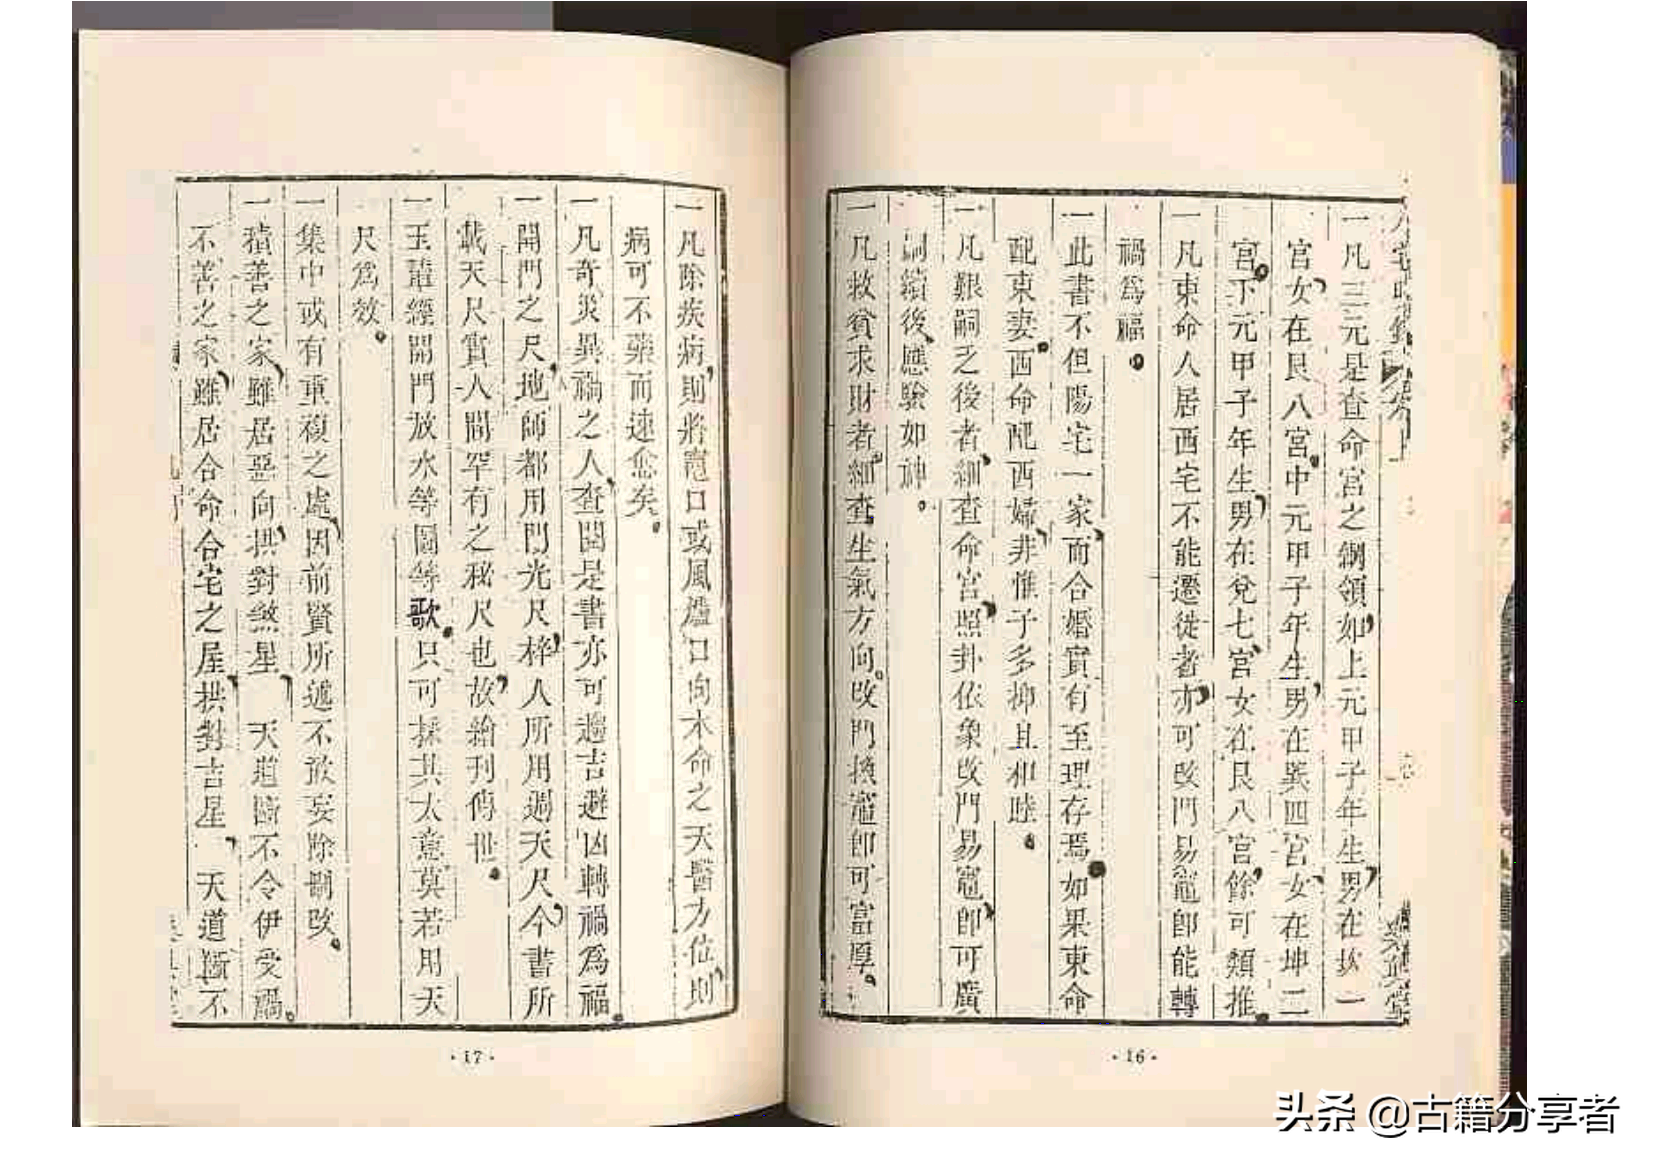 一凡三元是查命宮之綱領如上元甲子年生男在坎一
宮女在艮八宮中元甲子年生男在巽四宮女在坤二
宮下元甲子年生男在兌七宮女在艮八宮餘可類推
一凡東命人居西宅不能遷徙者亦可改門易竈即能轉
禍爲福
一此書不但陽宅一家而合婚實有至理存焉如果東命
配東妻西命配西婦非惟子多抑且和睦
一凡艱嗣乏後者細查命宮照卦依象改門易竈即可廣
嗣續後應驗如神
一凡救貧求財者細查生氣方向改門換竈即可富厚
·16·
一凡除疾病則將竈口或風爐口向本命之天醫方位則
病可不藥而速愈矣
一凡奇災異禍之人查閱是書亦可趨吉避凶轉禍爲福
一開門之尺地師都用門光尺梓人所用週天尺今書所
載天尺實人間罕有之秘尺也故繪刊傳世
一玉輦經開門放水等圖等歌只可採其大意莫若用天
尺爲效
一集中或有重複之處因前賢所遞不敢妄除刪改
一積善之家雖居惡向拱對煞星 天道斷不令伊受禍
不善之家雖居合命合宅之屋拱對吉星 天道斷不
·17·
头条 @古籍分享者